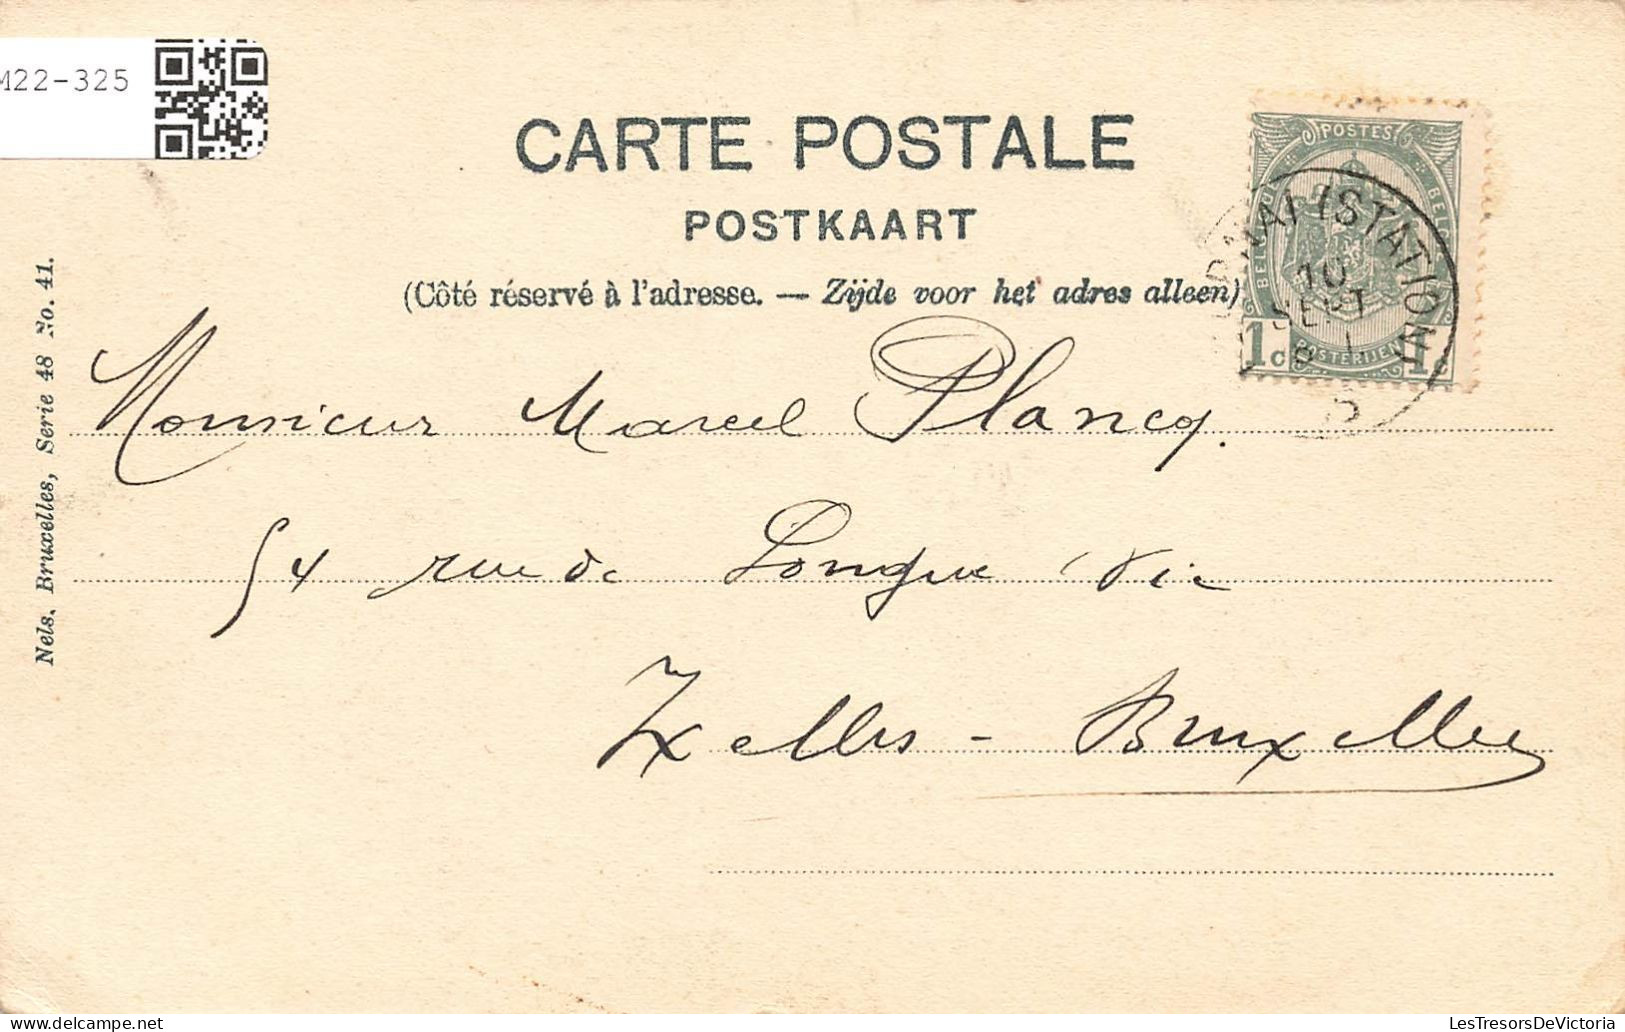 M22-325
CARTE POSTALE
POSTKAART
(Côté réservé à l'adresse. — Zijde voor het adres alleen)
POSTES
BELGIQUE
BELGIE
1c
POSTERIJEN
1c
(STATION)
10
SEPT
Monsieur Marcel Plancq.
54 rue de Longue Vie
Ixelles - Bruxelles
Nels. Bruxelles, Serie 48 No. 41.
LesTresorsDeVictoria